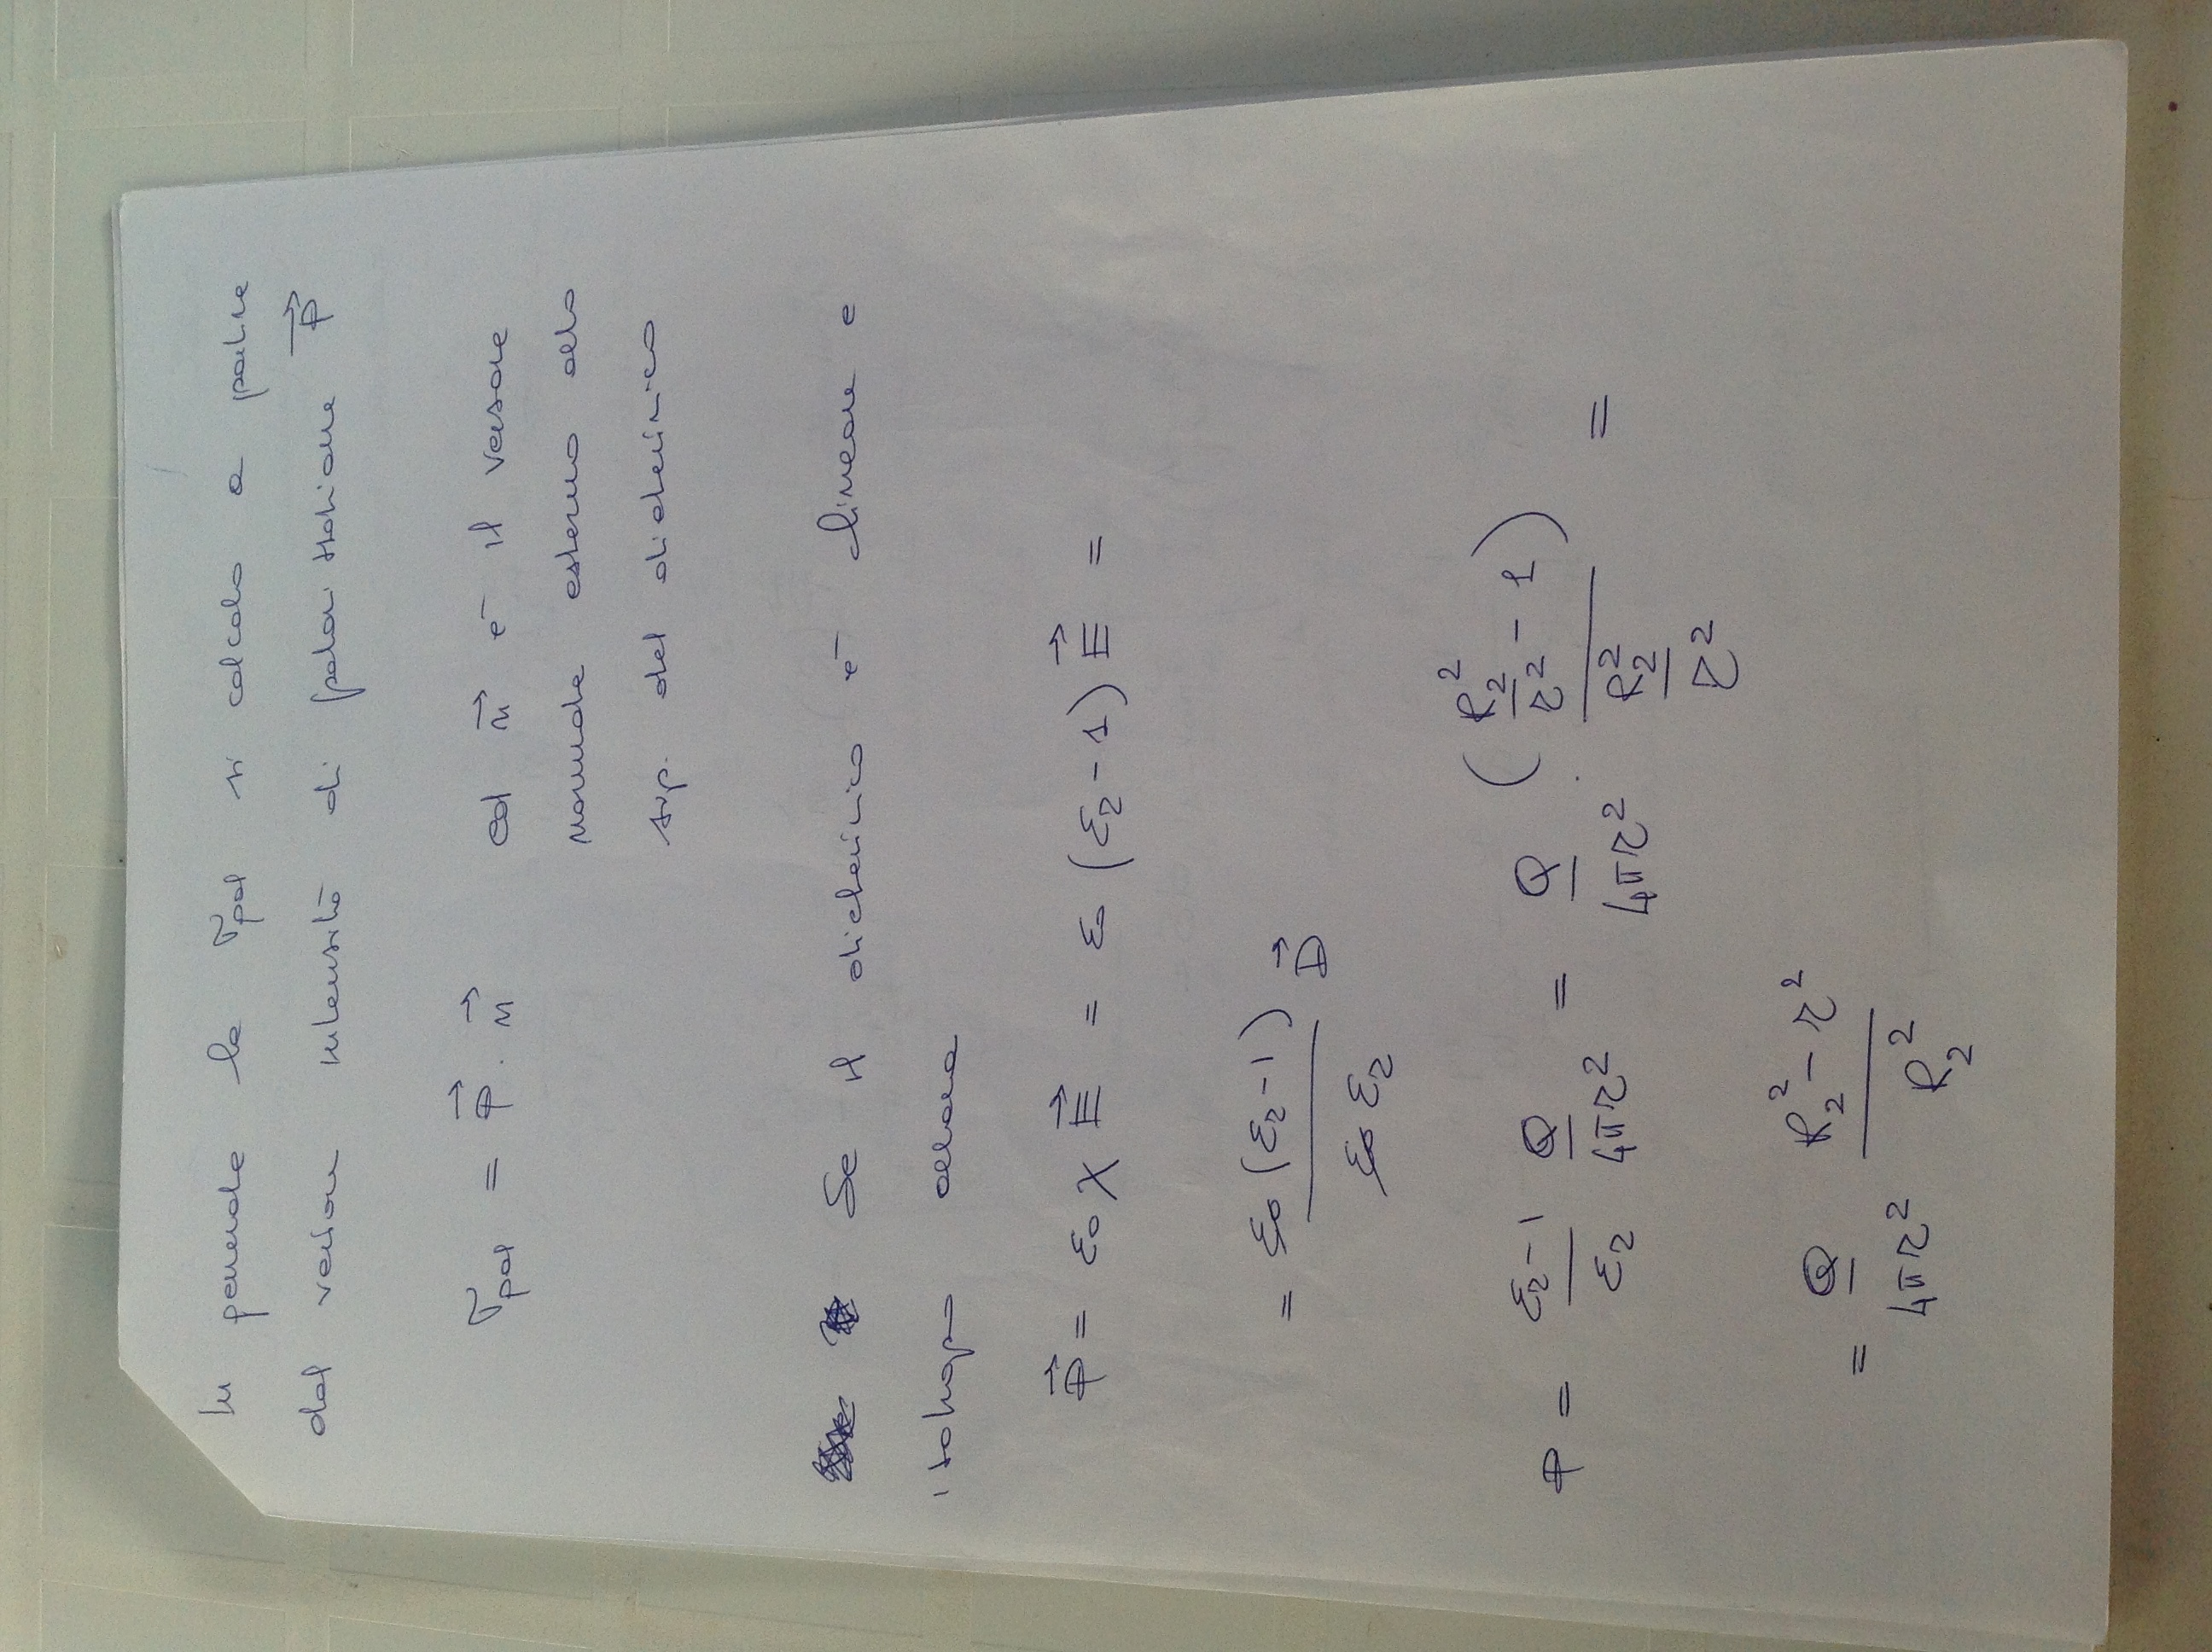 In generale la σpol si calcola a partire
dal vettore intensità di polarizzazione P⃗
σpol = P⃗ · n⃗ ed n⃗ è il versore
normale esterno alla
sup. del dielettrico
Se il dielettrico è lineare e
isotropo allora
P⃗ = ε₀ χ E⃗ = ε₀ (εr - 1) E⃗ =
= ε₀ (εr - 1) / ε₀ εr D⃗
P = (εr - 1) / εr Q / 4πr² = Q / 4πr² · (R₂² / r² - 1) / (R₂² / r²) =
= Q / 4πr² (R₂² - r²) / R₂²